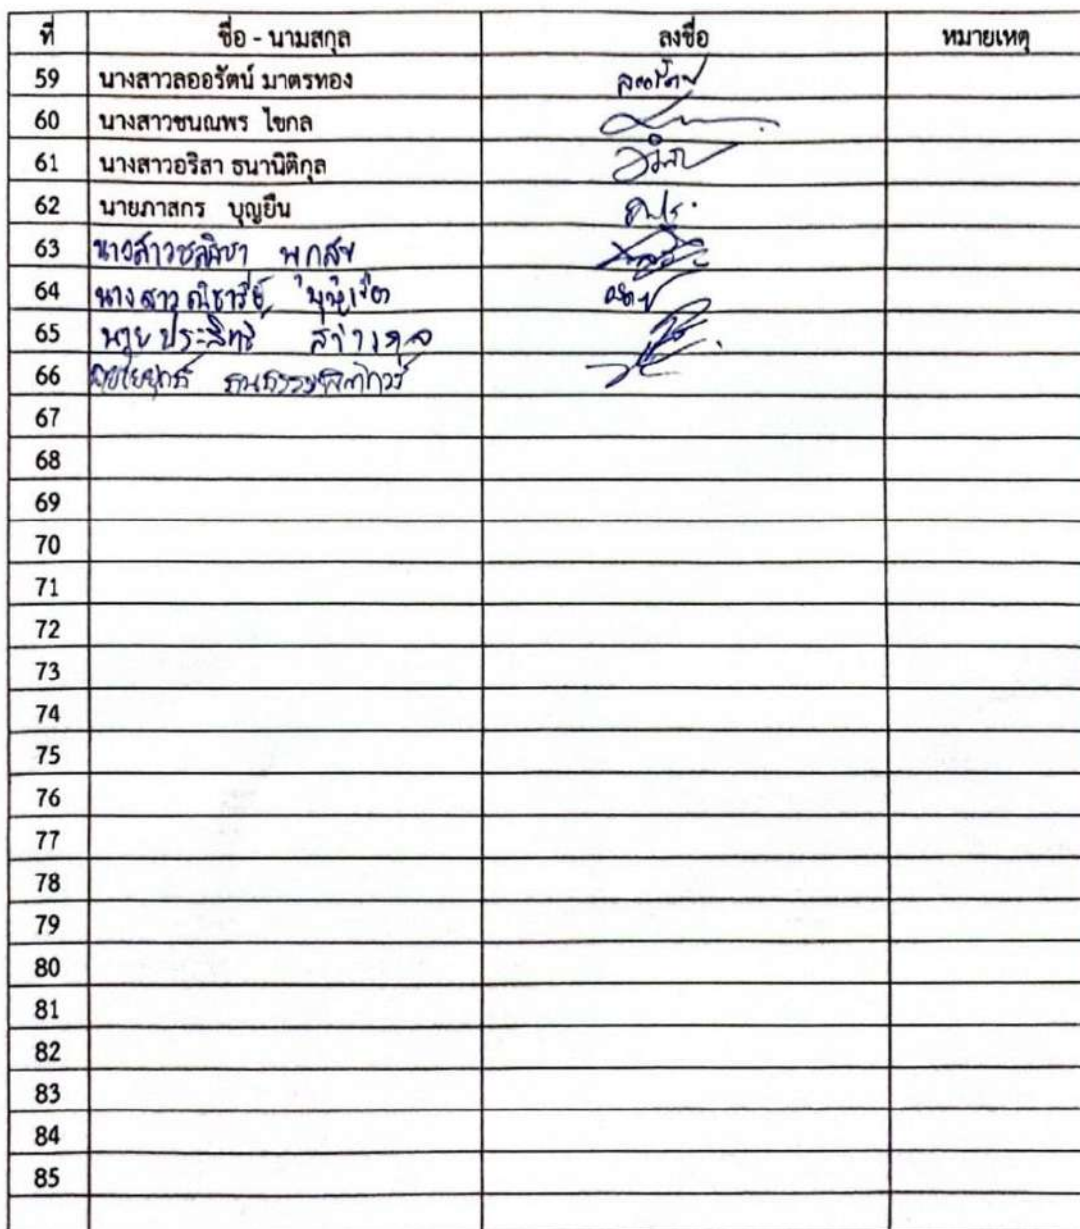 ที่ ชื่อ - นามสกุล ลงชื่อ หมายเหตุ
59 นางสาวลออรัตน์ มาตรทอง ลออรัตน์
60 นางสาวชนณพร ไขกล
61 นางสาวอริสา ธนานิติกุล อริสา
62 นายภาสกร บุญยืน
63 นางสาวชลธิชา พุกสุข
64 นางสาว
65 นายประสิทธิ์
66
67
68
69
70
71
72
73
74
75
76
77
78
79
80
81
82
83
84
85